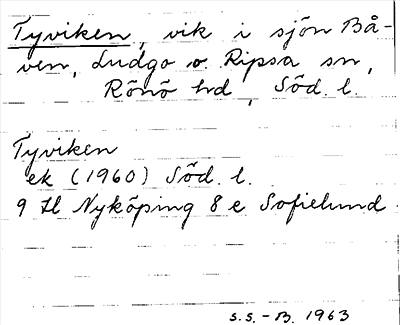 Tyviken, vik i sjön Bå-
ven, Ludgo o. Ripsa sn,
Rönö hd, Söd. l.
Tyviken
ek (1960) Söd. l.
9 H Nyköping 8 e Sofielund
S.S.-B. 1963